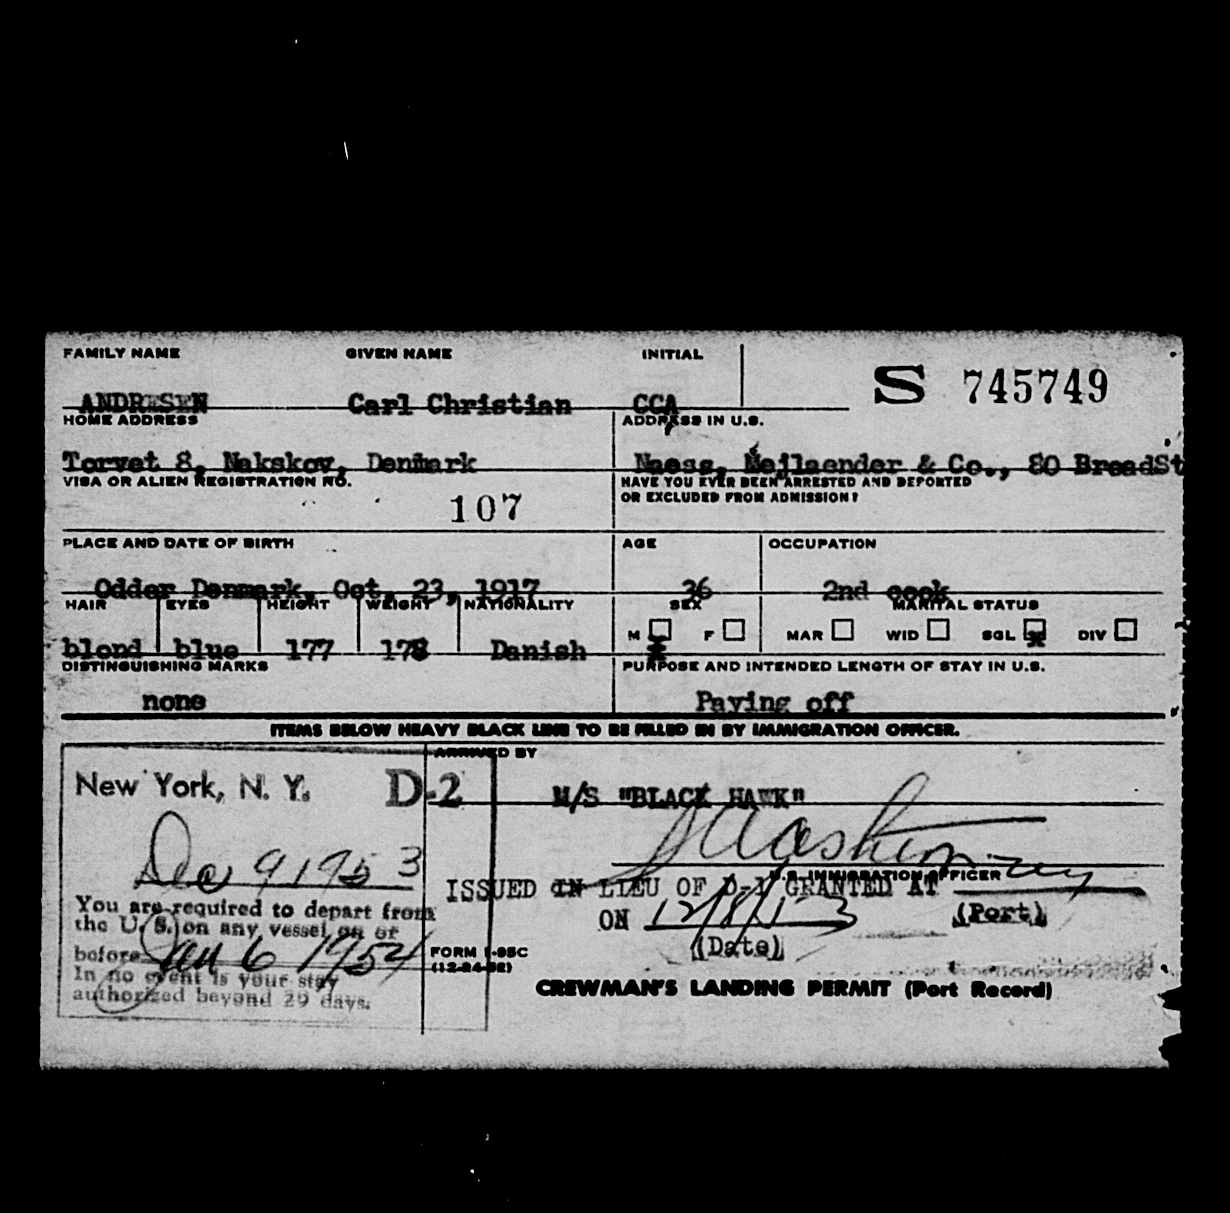 FAMILY NAME GIVEN NAME INITIAL
S 745749
ANDRESEN Carl Christian CCA
HOME ADDRESS ADDRESS IN U.S.
Torvet 8, Nakskov, Denmark Naess, Mejlaender & Co., 80 BroadSt
VISA OR ALIEN REGISTRATION NO. HAVE YOU EVER BEEN ARRESTED AND DEPORTED
OR EXCLUDED FROM ADMISSION?
107
PLACE AND DATE OF BIRTH AGE OCCUPATION
Odder Denmark, Oct. 23, 1917 36 2nd cook
HAIR EYES HEIGHT WEIGHT NATIONALITY SEX MARITAL STATUS
M F MAR WID SGL DIV
blond blue 177 178 Danish X X
DISTINGUISHING MARKS PURPOSE AND INTENDED LENGTH OF STAY IN U.S.
none Paying off
ITEMS BELOW HEAVY BLACK LINE TO BE FILLED IN BY IMMIGRATION OFFICER.
ARRIVED BY
New York, N. Y. D-2 M/S "BLACK HAWK"
Dec 9 1953
U.S. IMMIGRATION OFFICER
ISSUED IN LIEU OF D-1 GRANTED AT
You are required to depart from
the U. S. on any vessel on or
ON 12/8/53 (Port)
before Jan 6 1954
(Date)
In no event is your stay
authorized beyond 29 days.
FORM I-95C
(12-24-52)
CREWMAN'S LANDING PERMIT (Port Record)